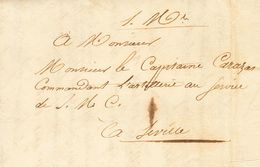 S. Mr
A Monsieur
Monsieur le Capitaine Carazas
Commandant l'artillerie au Service
de S. M. C.
A Seville